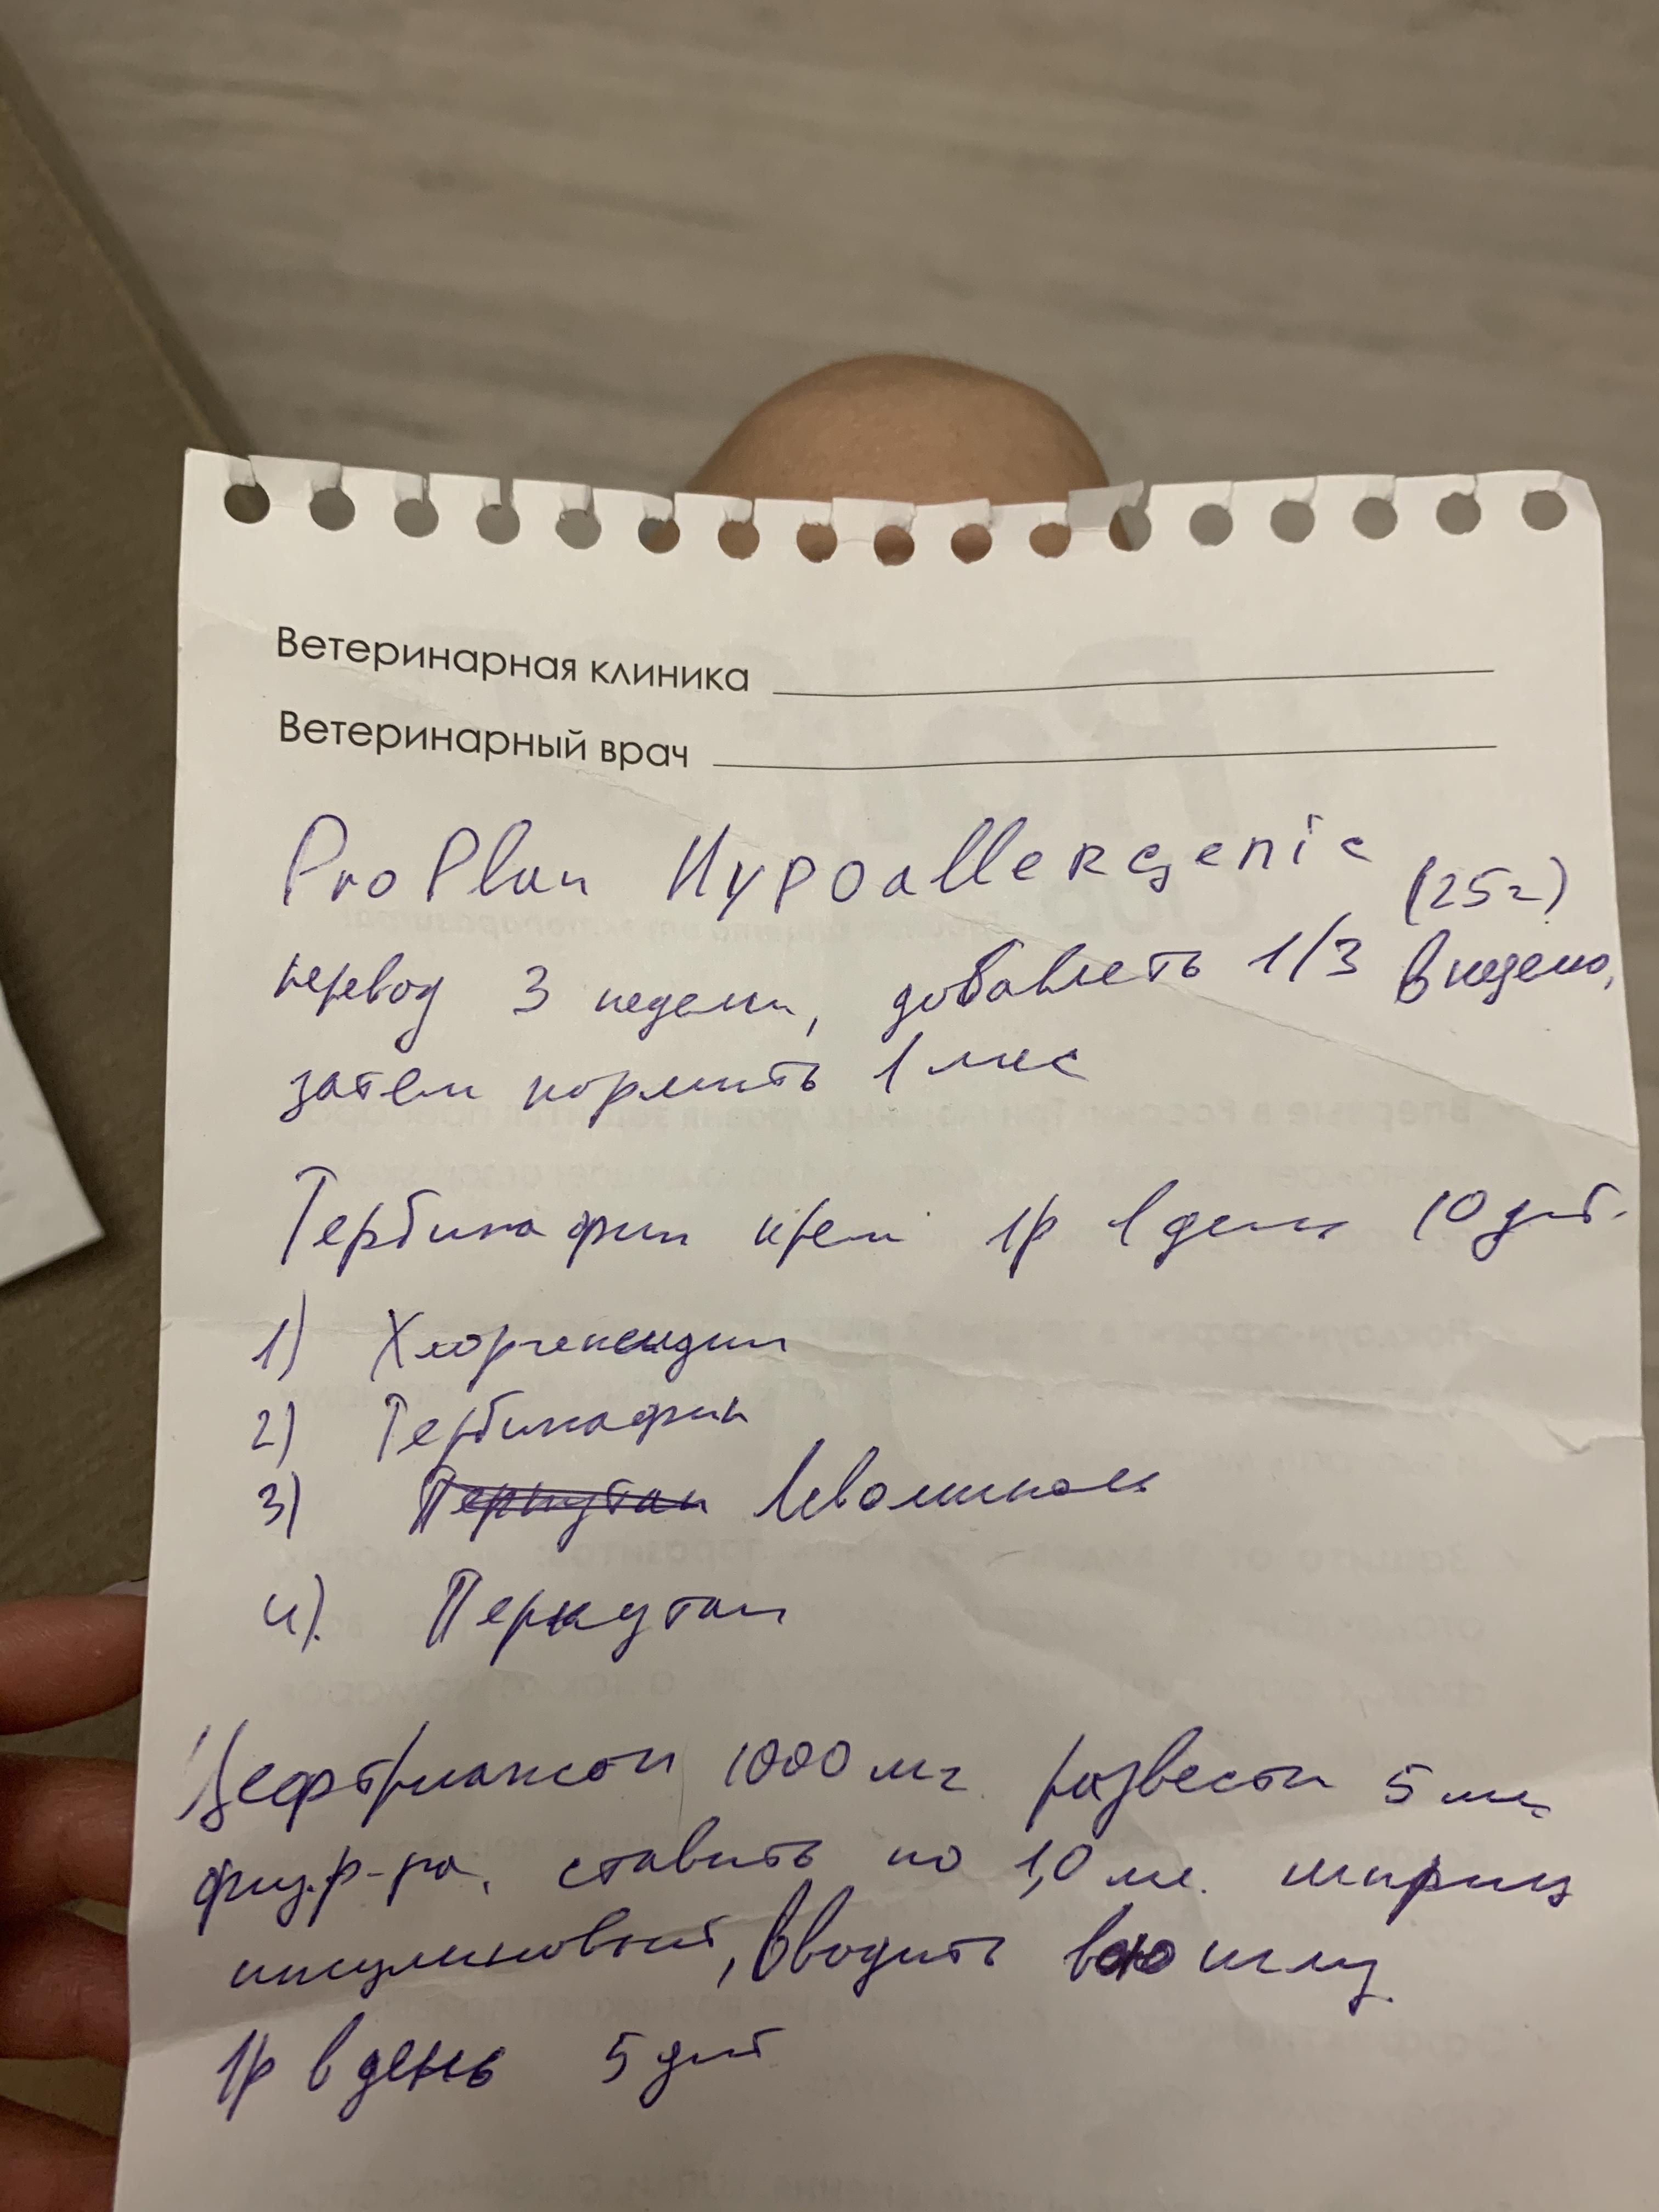 Ветеринарная клиника
Ветеринарный врач
ProPlan Hypoallergenic (25г)
перевод 3 недели, добавлять 1/3 в неделю,
затем кормить 1 мес
Тербинафин крем 1р в день 10 дней.
1) Хлоргексидин
2) Тербинафин
3) Перкутан Левомиколь
4). Перкутан
Цефтриаксон 1000 мг развести 5 мл
физ.р-ра, ставить по 1,0 мл. шприц
инсулиновый, вводить всю иглу.
1р в день 5 дней